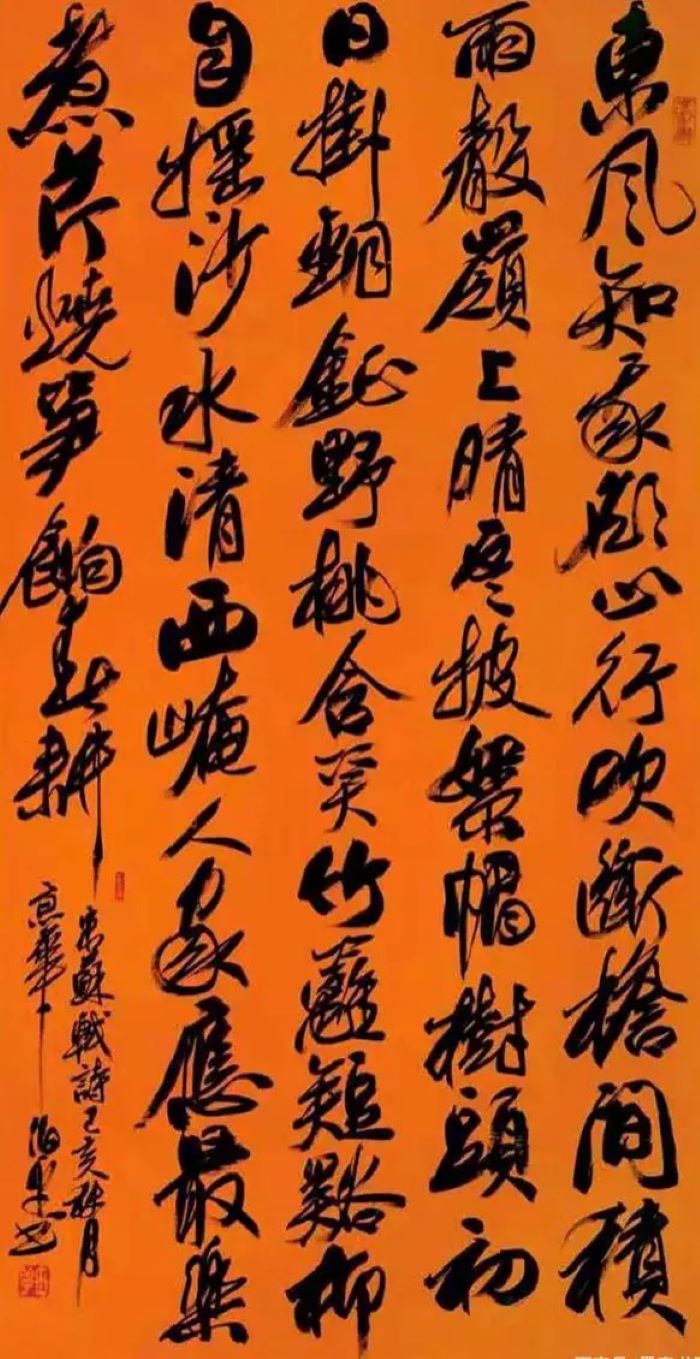 東風知我欲山行吹斷檐間積
雨聲嶺上晴雲披絮帽樹頭初
日掛銅鉦野桃含笑竹籬短谿柳
自搖沙水清西崦人家應最樂
煮芹燒筍餉春耕
蘇軾詩己亥秋月
京華